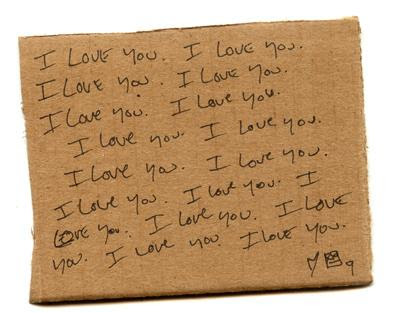 I LOVE YOU. I LOVE YOU.
I LOVE YOU. I LOVE YOU.
I LOVE YOU. I LOVE YOU.
I LOVE YOU. I LOVE YOU.
I LOVE YOU. I LOVE YOU.
I LOVE YOU. I LOVE YOU. I
LOVE YOU. I LOVE YOU. I LOVE
YOU. I LOVE YOU. I LOVE YOU.